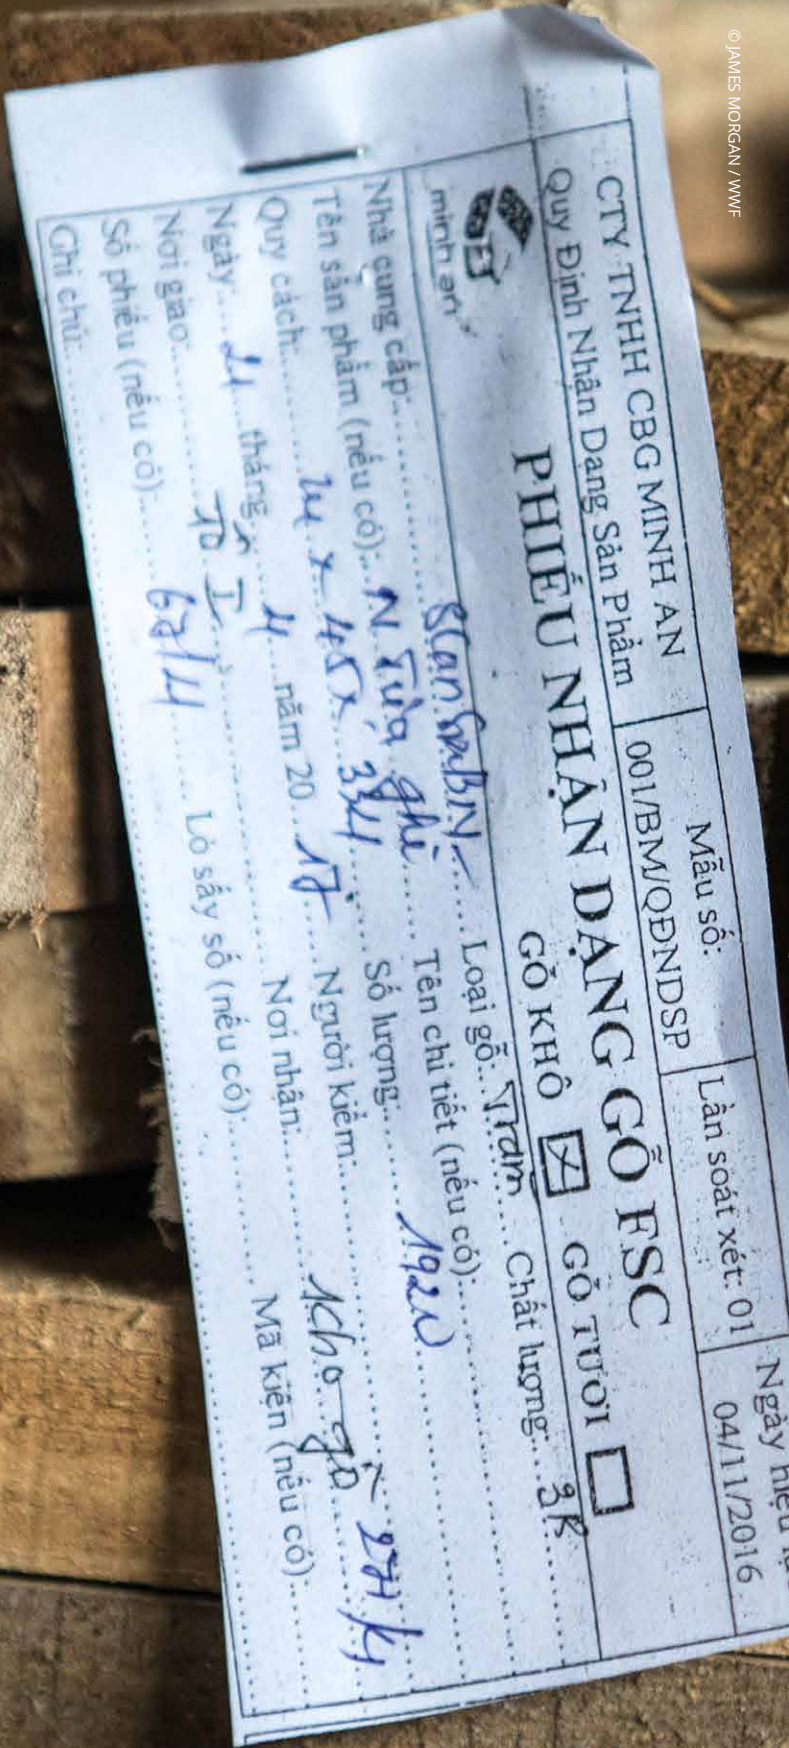 © JAMES MORGAN / WWF
CTY TNHH CBG MINH AN
Quy Định Nhận Dạng Sản Phẩm
Mẫu số:
001/BM/QĐNDSP
Lần soát xét: 01
Ngày hiệu
04/11/2016
minh an
PHIẾU NHẬN DẠNG GỖ FSC
GỖ KHÔ ☒ GỖ TƯƠI ☐
Nhà cung cấp: Loại gỗ: Tràm Chất lượng:
Tên sản phẩm (nếu có): N. Tựa ghế Tên chi tiết (nếu có):
Quy cách: 24 x 45 x 334 Số lượng: 192
Ngày: 21 tháng 4 năm 2017 Người kiểm:
Nơi giao: Tổ I Nơi nhận: Kho gỗ
Số phiếu (nếu có): Lò sấy số (nếu có): Mã kiện (nếu có):
Ghi chú: